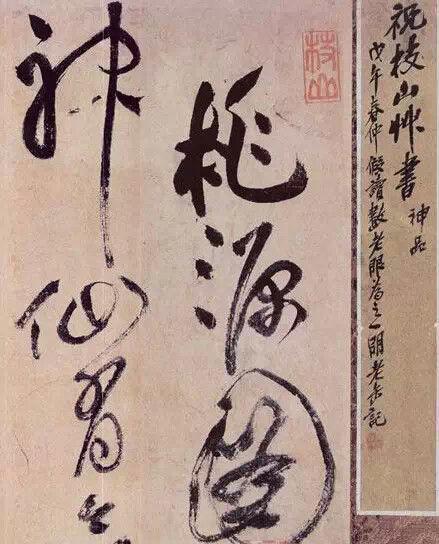 祝枝山艸書
神品
戊午春仲假讀數老眼為之一明老缶記
枝山
桃源圖
神仙有